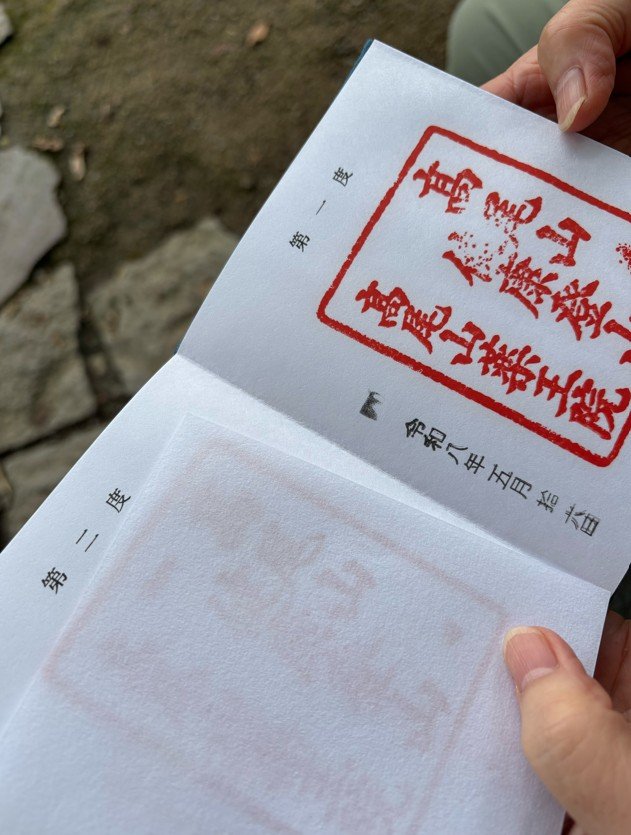 第一度
高尾山
健康登山
高尾山薬王院
令和八年五月拾六日
第二度